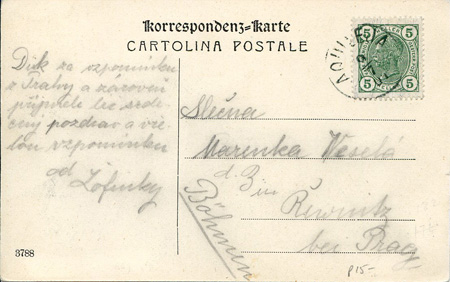 Korrespondenz-Karte
CARTOLINA POSTALE
AQUILEIA
5 5
5 5
Dík za vzpomínku
z Prahy a zároveň
přijměte
pozdrav a
vzpomínku
od
Žofinky
Slečna
Marenka Veselá
d. Z in
Řewnitz
bei Prag
Böhmen
3788
p15-